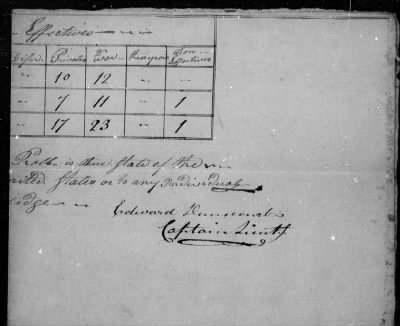 Effectives
Privates War Non Effectives
" 10 12 " "
" 7 11 " 1
17 23 " 1
Roll is true State of the
United States or to any Individual
Edward
Captain Lieut